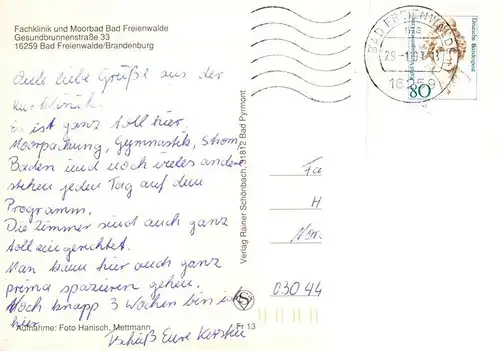 Fachklinik und Moorbad Bad Freienwalde
Gesundbrunnenstraße 33
16259 Bad Freienwalde/Brandenburg
Viele liebe Grüße aus der
Kurklinik.
Es ist ganz toll hier,
Moorpackung, Gymnastik, Strom,
Baden und noch vieles andere
stehen jeden Tag auf dem
Programm.
Die Zimmer sind auch ganz
toll eingerichtet.
Man kann hier auch ganz
prima spazieren gehen.
Noch knapp 3 Wochen bin ich
hier.
Tschüß Eure Kerstin
Aufnahme: Foto Hanisch, Mettmann
Fr 13
Verlag Rainer Schönbach, 31812 Bad Pyrmont
BAD FREIENWALDE
16259
Deutsche Bundespost
80
Fa
H
030 44